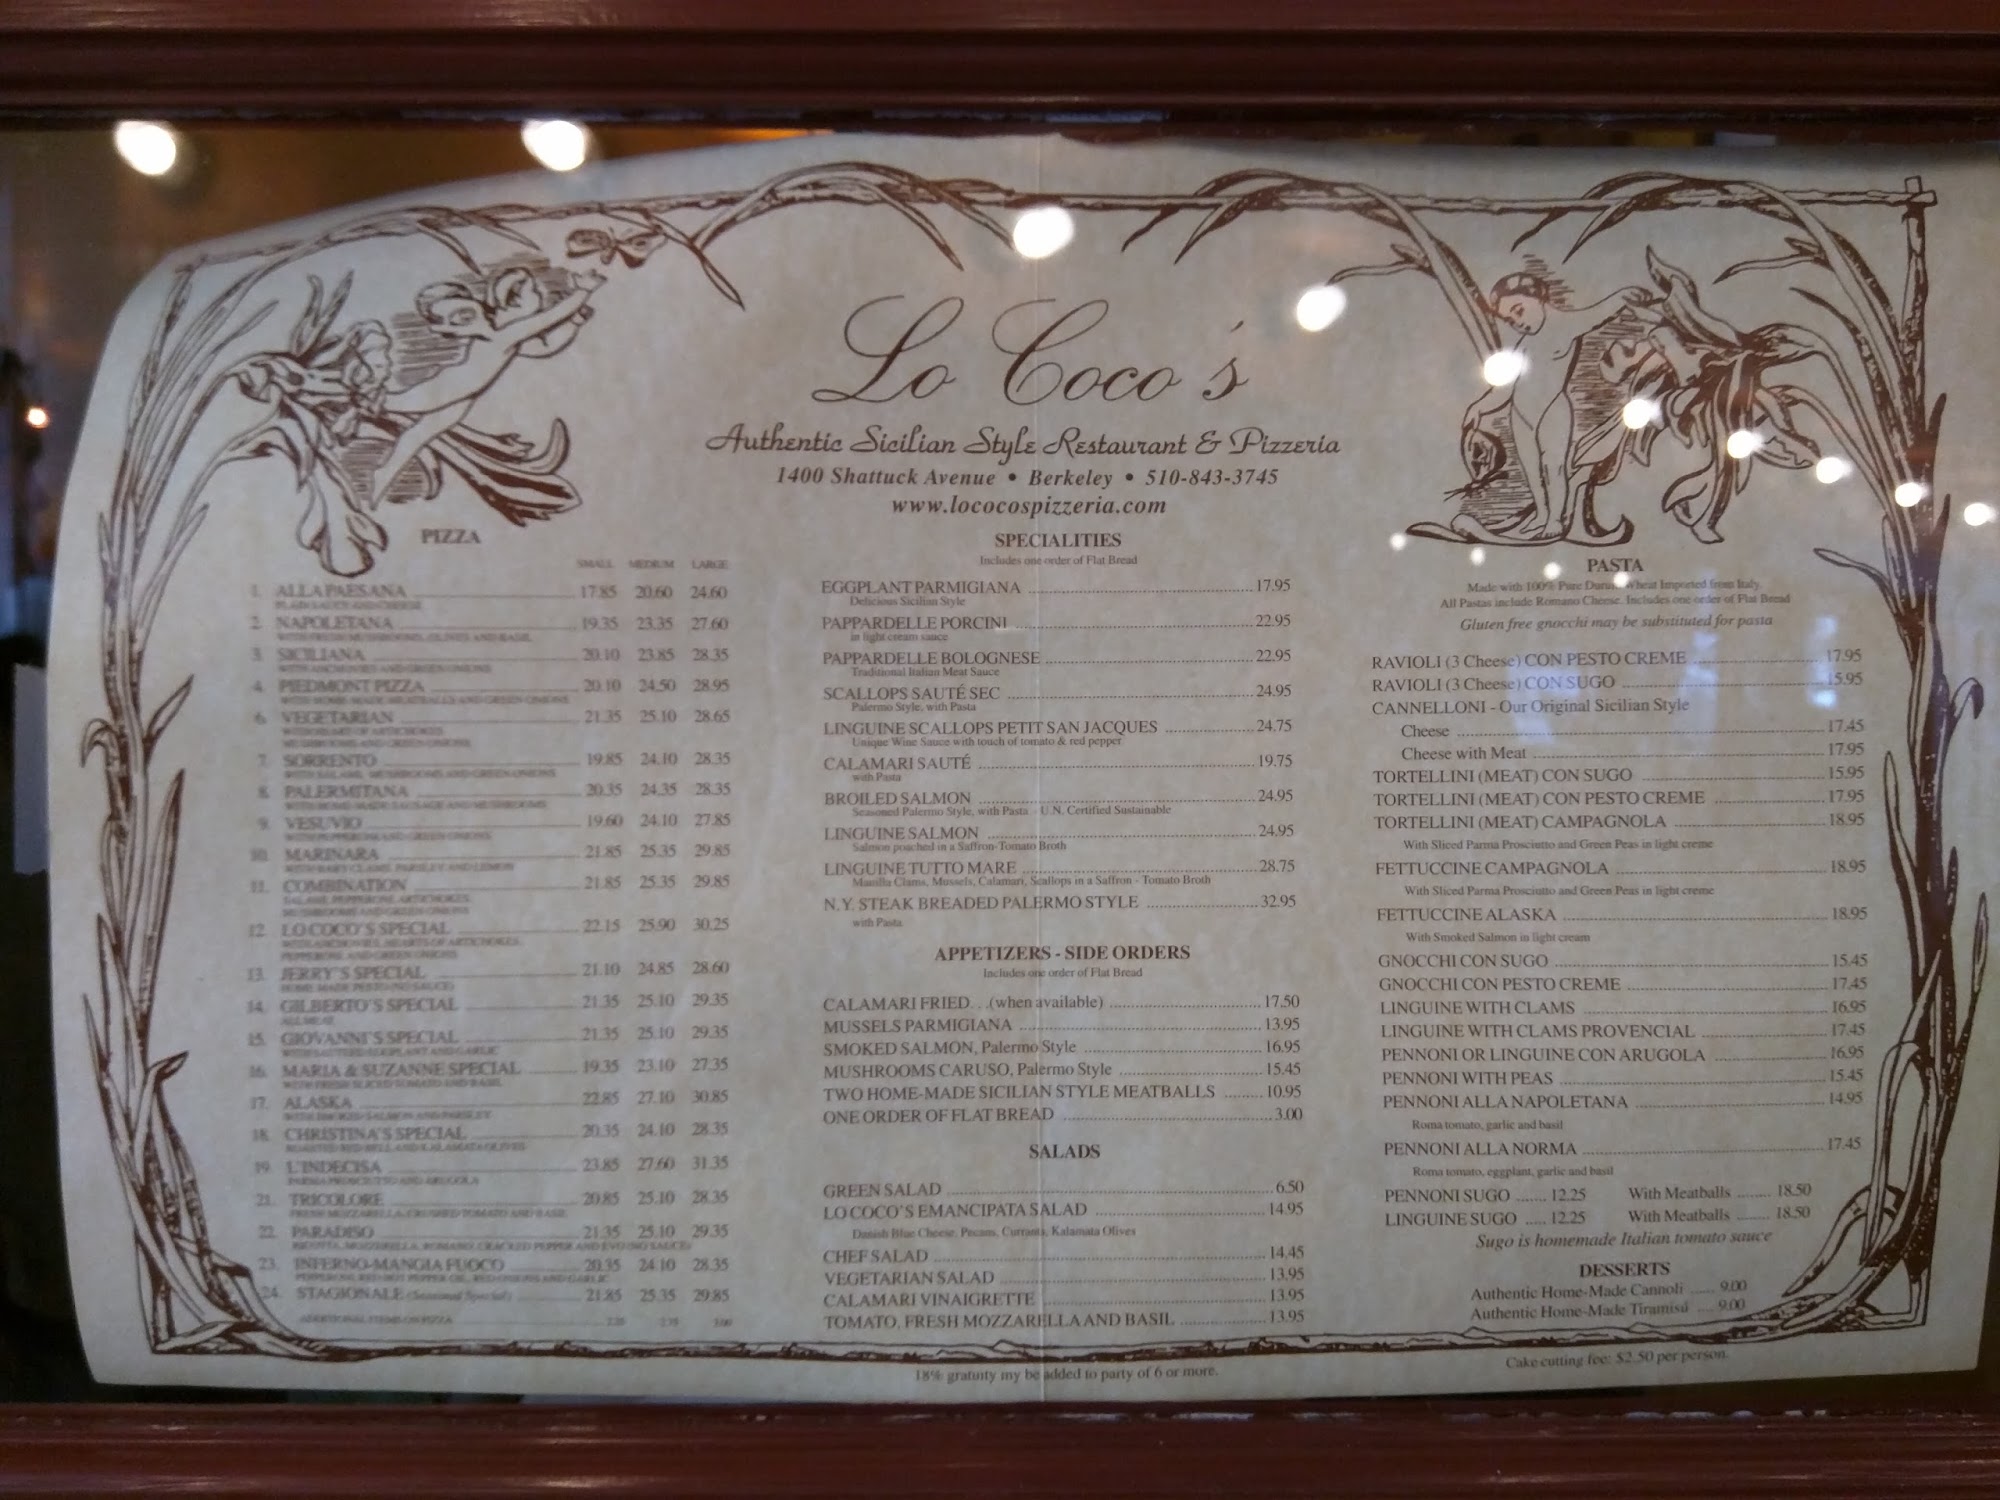 Lo Coco's
Authentic Sicilian Style Restaurant & Pizzeria
1400 Shattuck Avenue • Berkeley • 510-843-3745
www.lococospizzeria.com
PIZZA
SMALL MEDIUM LARGE
1. ALLA PAESANA 17.85 20.60 24.60
PLAIN SAUCE AND CHEESE
2. NAPOLETANA 19.35 23.35 27.60
WITH FRESH MUSHROOMS, OLIVES AND BASIL
3. SICILIANA 20.10 23.85 28.35
WITH ANCHOVIES AND GREEN ONIONS
4. PIEDMONT PIZZA 20.10 24.50 28.95
WITH HOME MADE MEATBALLS AND GREEN ONIONS
6. VEGETARIAN 21.35 25.10 28.65
WITH HEART OF ARTICHOKES
MUSHROOMS AND GREEN ONIONS
7. SORRENTO 19.85 24.10 28.35
WITH SALAMI, MUSHROOMS AND GREEN ONIONS
8. PALERMITANA 20.35 24.35 28.35
WITH HOME MADE SAUSAGE AND MUSHROOMS
9. VESUVIO 19.60 24.10 27.85
WITH PEPPERONI AND GREEN ONIONS
10. MARINARA 21.85 25.35 29.85
WITH BABY CLAMS, PARSLEY AND LEMON
11. COMBINATION 21.85 25.35 29.85
SALAMI, PEPPERONI, ARTICHOKES
MUSHROOMS AND GREEN ONIONS
12. LO COCO'S SPECIAL 22.15 25.90 30.25
WITH ANCHOVIES, HEARTS OF ARTICHOKES
PEPPERONI, AND GREEN ONIONS
13. JERRY'S SPECIAL 21.10 24.85 28.60
HOME MADE PESTO (NO SAUCE)
14. GILBERTO'S SPECIAL 21.35 25.10 29.35
ALL MEAT
15. GIOVANNI'S SPECIAL 21.35 25.10 29.35
WITH SAUTEED EGGPLANT AND GARLIC
16. MARIA & SUZANNE SPECIAL 19.35 23.10 27.35
WITH FRESH SLICED TOMATO AND BASIL
17. ALASKA 22.85 27.10 30.85
WITH SMOKED SALMON AND PARSLEY
18. CHRISTINA'S SPECIAL 20.35 24.10 28.35
ROASTED RED BELL AND KALAMATA OLIVES
19. L'INDECISA 23.85 27.60 31.35
PARMA PROSCIUTTO AND ARUGOLA
21. TRICOLORE 20.85 25.10 28.35
FRESH MOZZARELLA, CRUSHED TOMATO AND BASIL
22. PARADISO 21.35 25.10 29.35
RICOTTA, MOZZARELLA, ROMANO, CRACKED PEPPER AND EVO (NO SAUCE)
23. INFERNO-MANGIA FUOCO 20.35 24.10 28.35
PEPPERONI, RED HOT PEPPER OIL, RED ONIONS AND GARLIC
24. STAGIONALE (Seasonal Special) 21.85 25.35 29.85
ADDITIONAL ITEMS ON PIZZA 3.00
SPECIALITIES
Includes one order of Flat Bread
EGGPLANT PARMIGIANA 17.95
Delicious Sicilian Style
PAPPARDELLE PORCINI 22.95
in light cream sauce
PAPPARDELLE BOLOGNESE 22.95
Traditional Italian Meat Sauce
SCALLOPS SAUTÉ SEC 24.95
Palermo Style, with Pasta
LINGUINE SCALLOPS PETIT SAN JACQUES 24.75
Unique Wine Sauce with touch of tomato & red pepper
CALAMARI SAUTÉ 19.75
with Pasta
BROILED SALMON 24.95
Seasoned Palermo Style, with Pasta - U.N. Certified Sustainable
LINGUINE SALMON 24.95
Salmon poached in a Saffron-Tomato Broth
LINGUINE TUTTO MARE 28.75
Manilla Clams, Mussels, Calamari, Scallops in a Saffron - Tomato Broth
N.Y. STEAK BREADED PALERMO STYLE 32.95
with Pasta
APPETIZERS - SIDE ORDERS
Includes one order of Flat Bread
CALAMARI FRIED. . .(when available) 17.50
MUSSELS PARMIGIANA 13.95
SMOKED SALMON, Palermo Style 16.95
MUSHROOMS CARUSO, Palermo Style 15.45
TWO HOME-MADE SICILIAN STYLE MEATBALLS 10.95
ONE ORDER OF FLAT BREAD 3.00
SALADS
GREEN SALAD 6.50
LO COCO'S EMANCIPATA SALAD 14.95
Danish Blue Cheese, Pecans, Currants, Kalamata Olives
CHEF SALAD 14.45
VEGETARIAN SALAD 13.95
CALAMARI VINAIGRETTE 13.95
TOMATO, FRESH MOZZARELLA AND BASIL 13.95
PASTA
Made with 100% Pure Durum Wheat Imported from Italy.
All Pastas include Romano Cheese. Includes one order of Flat Bread
Gluten free gnocchi may be substituted for pasta
RAVIOLI (3 Cheese) CON PESTO CREME 17.95
RAVIOLI (3 Cheese) CON SUGO 15.95
CANNELLONI - Our Original Sicilian Style
Cheese 17.45
Cheese with Meat 17.95
TORTELLINI (MEAT) CON SUGO 15.95
TORTELLINI (MEAT) CON PESTO CREME 17.95
TORTELLINI (MEAT) CAMPAGNOLA 18.95
With Sliced Parma Prosciutto and Green Peas in light creme
FETTUCCINE CAMPAGNOLA 18.95
With Sliced Parma Prosciutto and Green Peas in light creme
FETTUCCINE ALASKA 18.95
With Smoked Salmon in light cream
GNOCCHI CON SUGO 15.45
GNOCCHI CON PESTO CREME 17.45
LINGUINE WITH CLAMS 16.95
LINGUINE WITH CLAMS PROVENCIAL 17.45
PENNONI OR LINGUINE CON ARUGOLA 16.95
PENNONI WITH PEAS 15.45
PENNONI ALLA NAPOLETANA 14.95
Roma tomato, garlic and basil
PENNONI ALLA NORMA 17.45
Roma tomato, eggplant, garlic and basil
PENNONI SUGO 12.25 With Meatballs 18.50
LINGUINE SUGO 12.25 With Meatballs 18.50
Sugo is homemade Italian tomato sauce
DESSERTS
Authentic Home-Made Cannoli 9.00
Authentic Home-Made Tiramisú 9.00
18% gratuity my be added to party of 6 or more.
Cake cutting fee: $2.50 per person.